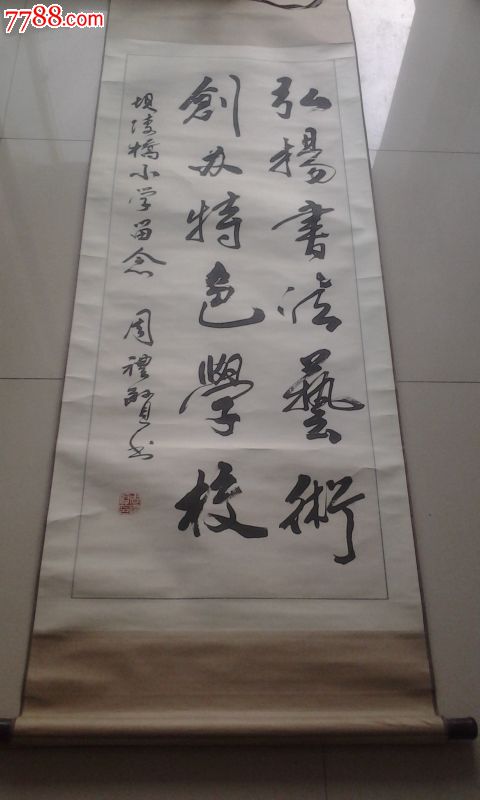 7788.com
弘揚书法藝術
創办特色學校
坝陵橋小学留念 周禮賢书